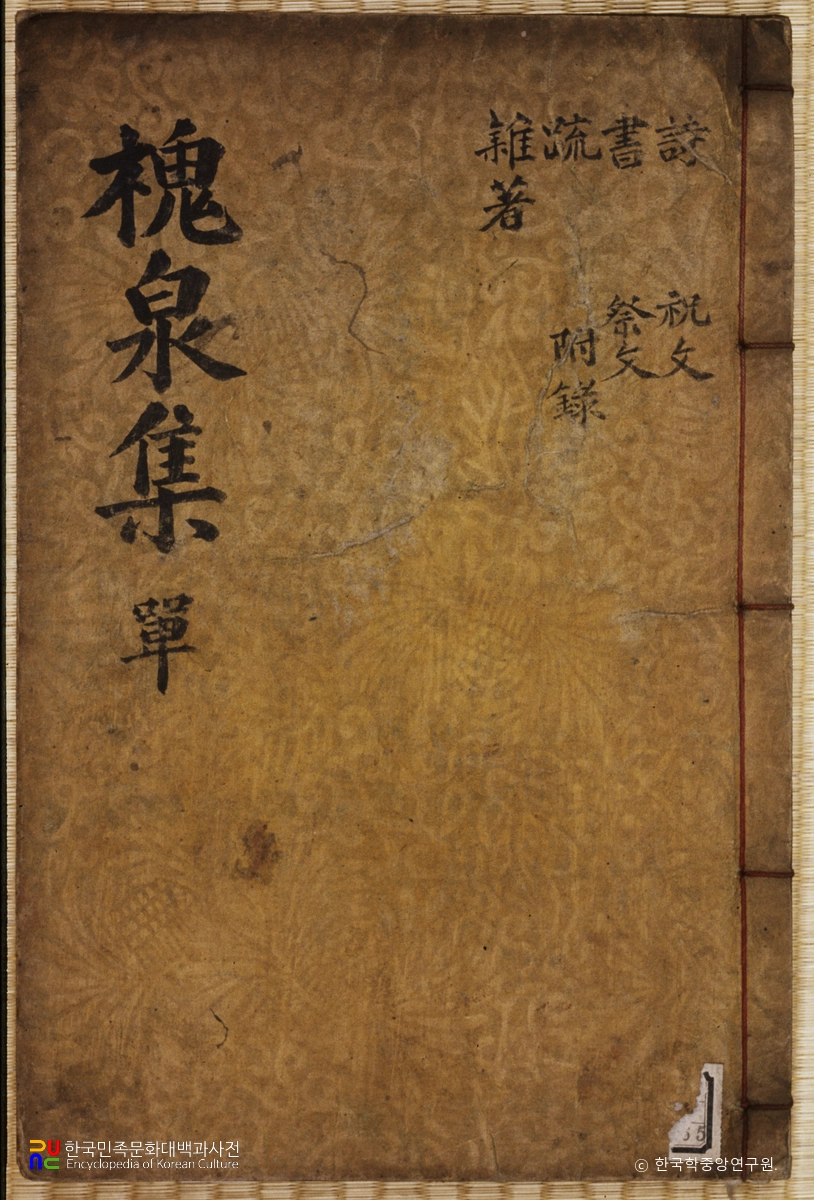 詩
書
疏
雜著
祝文
祭文
附錄
槐泉集 單
35
한국민족문화대백과사전
Encyclopedia of Korean Culture
© 한국학중앙연구원.